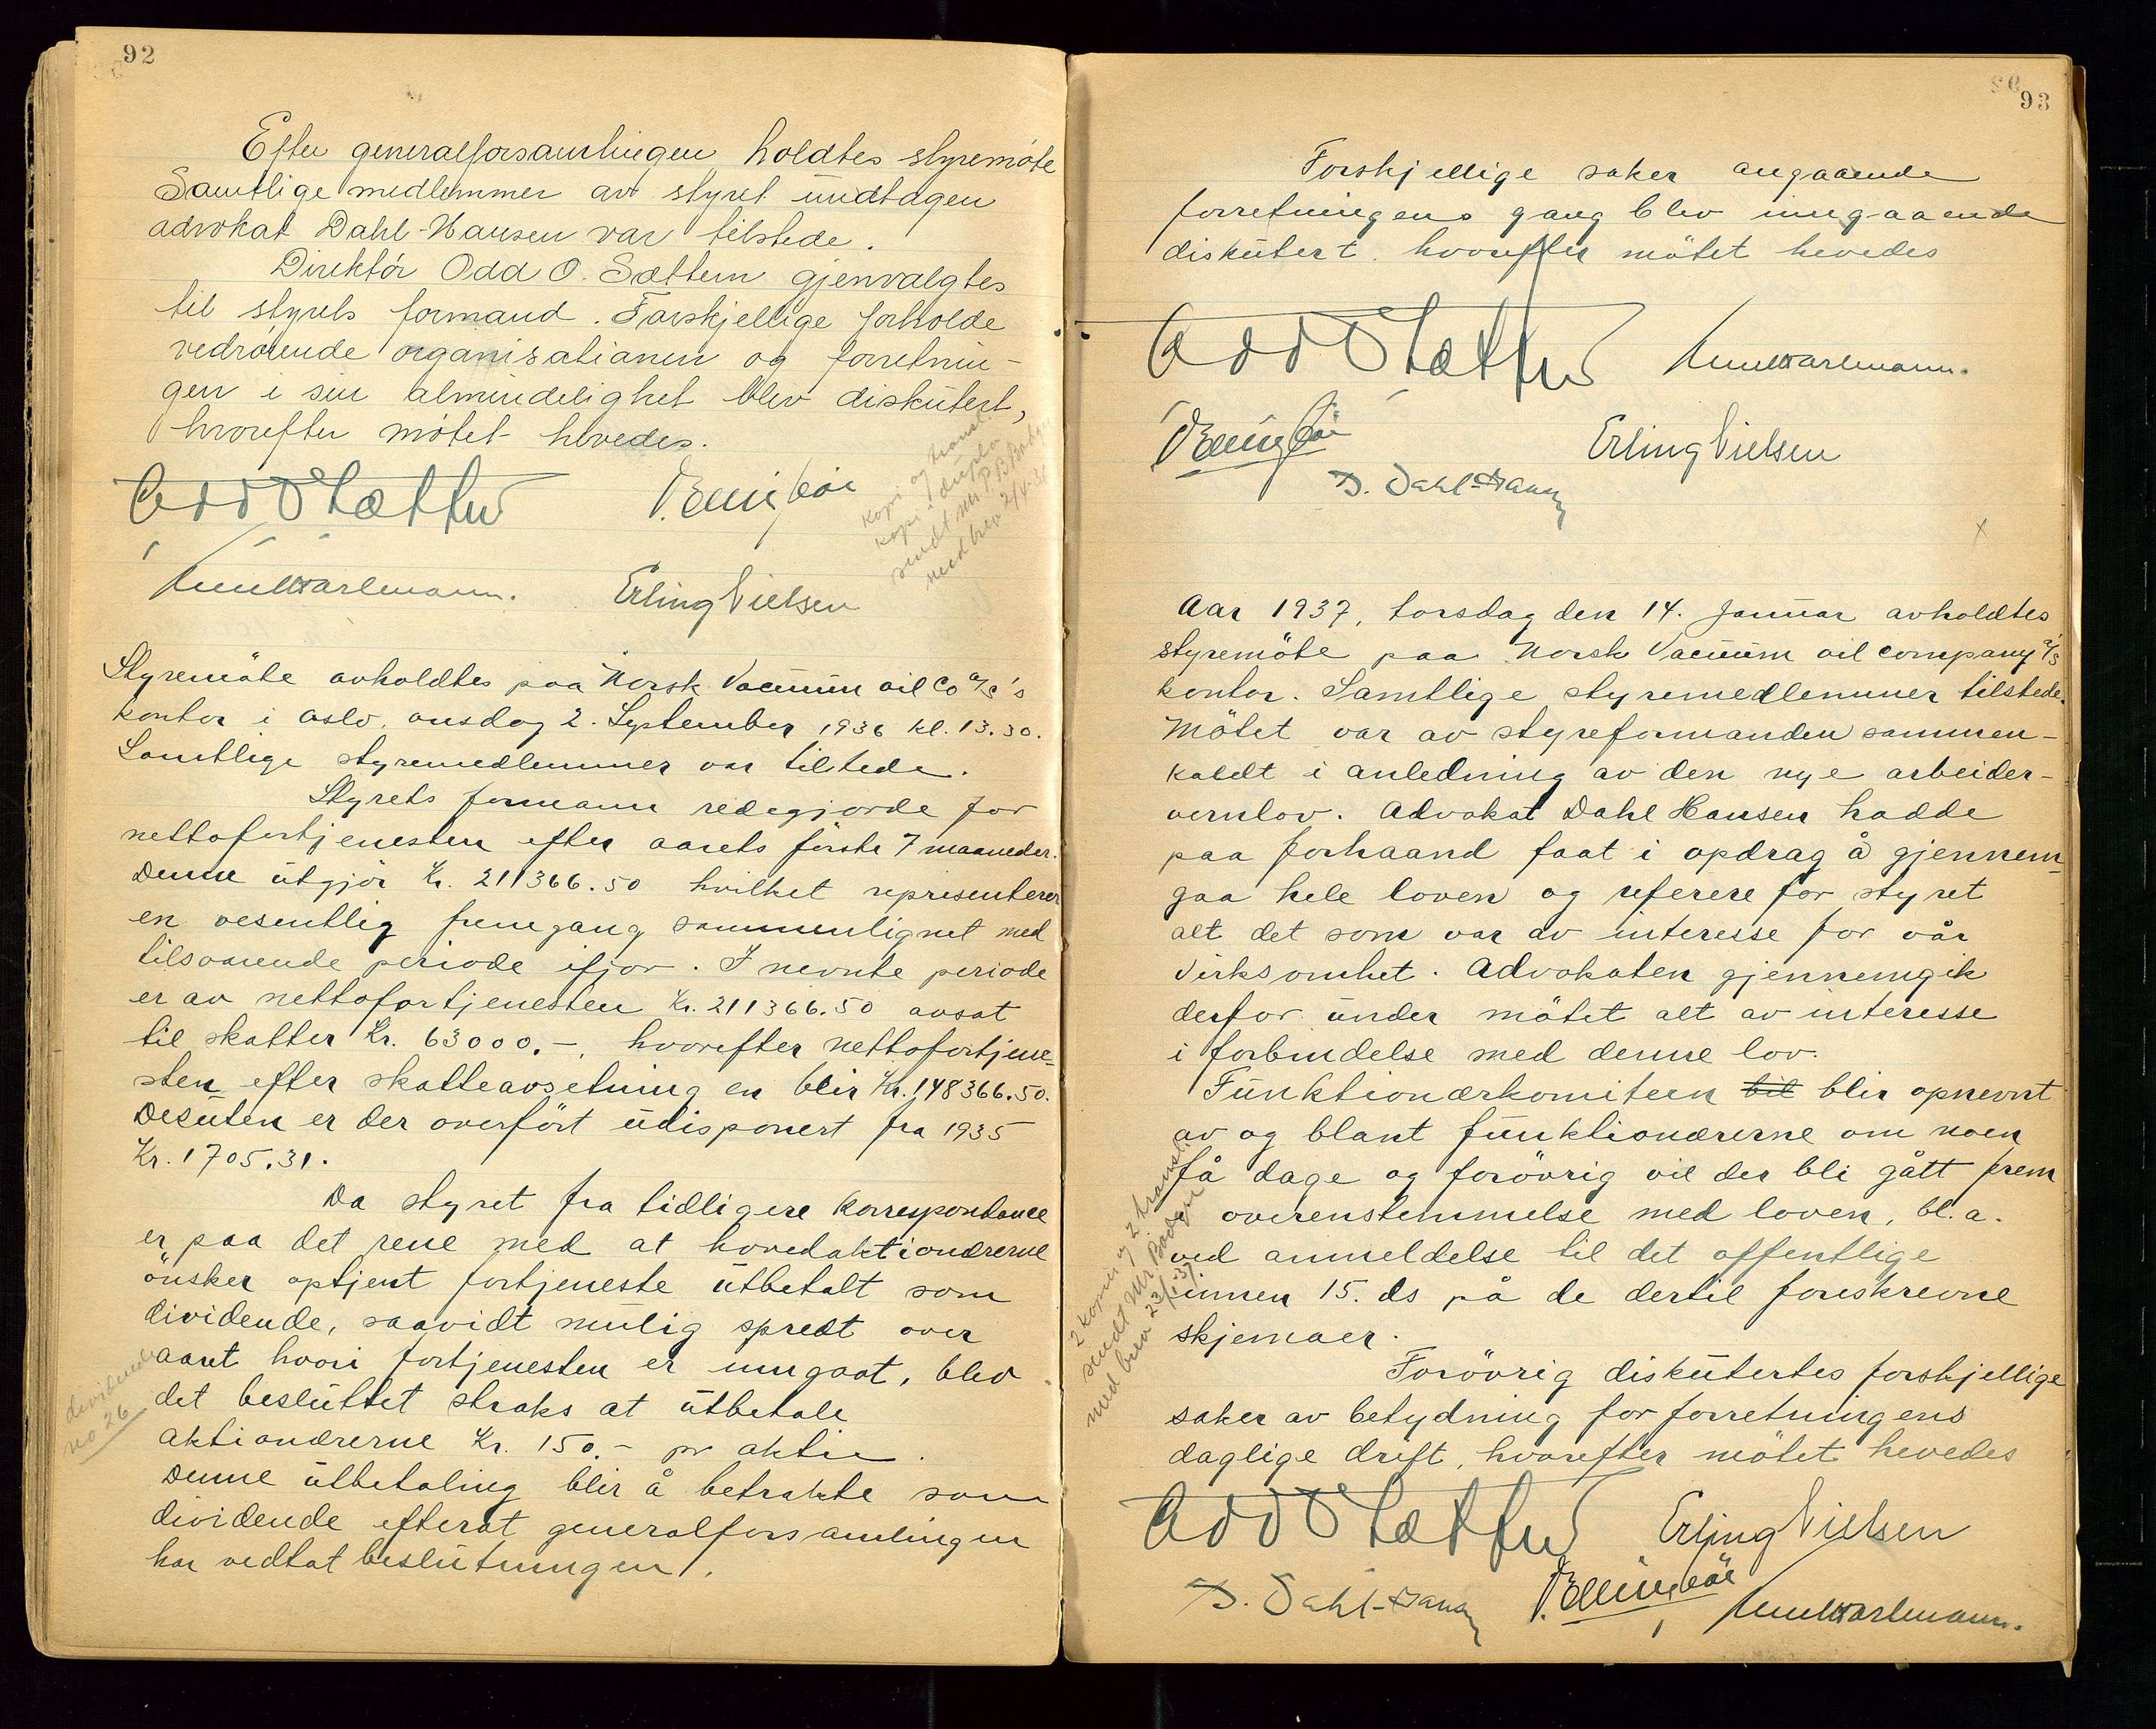 92
Efter generalforsamlingen holdtes styremöte
Samtlige medlemmer av styret undtagen
advokat Dahl-Hansen var tilstede.
Direktör Odd O. Sættem gjenvalgtes
til styrets formand. Forskjellige forholde
vedrörende organisationen og forretnin-
gen i sin almindelighet blev diskutert,
hvorefter mötet hevedes.
Odd O Sættem
Erling Nielsen
kopi og transl.
kopi i duplo
sendt Mr P B
med brev 2/4-36
Styremöte avholdtes paa Norsk Vacuum oil Co a/s's
kontor i Oslo, onsdag 2. September 1936 kl. 13.30.
Samtlige styremedlemmer var tilstede.
Styrets formann redegjorde for
nettofortjenesten efter aarets förste 7 maaneder.
Denne utgjör Kr. 211366.50 hvilket representerer
en vesentlig fremgang sammenlignet med
tilsvarende periode ifjor. I nevnte periode
er av nettofortjenesten Kr. 211366.50 avsat
til skatter Kr. 63000.-, hvorefter nettofortjene-
sten efter skatteavsetning en blir Kr. 148366.50.
Desuten er der overfört udisponert fra 1935
Kr. 1705.31.
Da styret fra tidligere korrespondance
er paa det rene med at hovedaktionærerne
önsker optjent fortjeneste utbetalt som
dividende, saavidt mulig spredt over
aaret hvori fortjenesten er inngaat, blev
det besluttet straks at utbetale
aktionærerne Kr. 150.- pr aktie.
Denne utbetaling blir å betrakte som
dividende efterat generalforsamlingen
har vedtat beslutningen.
dividende
no 26
93
Forskjellige saker angaaende
forretningens gang blev inngaaende
diskutert, hvorefter mötet hevedes
Odd O Sættem
Erling Nielsen
D. Dahl-Hansen
x
Aar 1937, torsdag den 14. Januar avholdtes
styremöte paa Norsk Vacuum oil company a/s
kontor. Samtlige styremedlemmer tilstede.
Mötet var av styreformanden sammen-
kaldt i anledning av den nye arbeider-
vernlov. Advokat Dahl Hansen hadde
paa forhaand faat i opdrag å gjennem-
gaa hele loven og referere for styret
alt det som var av interesse for vår
virksomhet. Advokaten gjennemgik
derfor under mötet alt av interesse
i forbindelse med denne lov.
Funktionærkomiteen til blir opnevnt
av og blant funktionærerne om noen
få dage og forövrig vil der bli gått frem
i overenstemmelse med loven, bl.a.
ved anmeldelse til det offentlige
innen 15. ds på de dertil foreskrevne
skjemaer.
2 kopier og 2 transl.
sendt Mr Badger
med brev 23/1-37.
Forövrig diskutertes forskjellige
saker av betydning for forretningens
daglige drift, hvorefter mötet hevedes
Odd O Sættem
Erling Nielsen
D. Dahl-Hansen